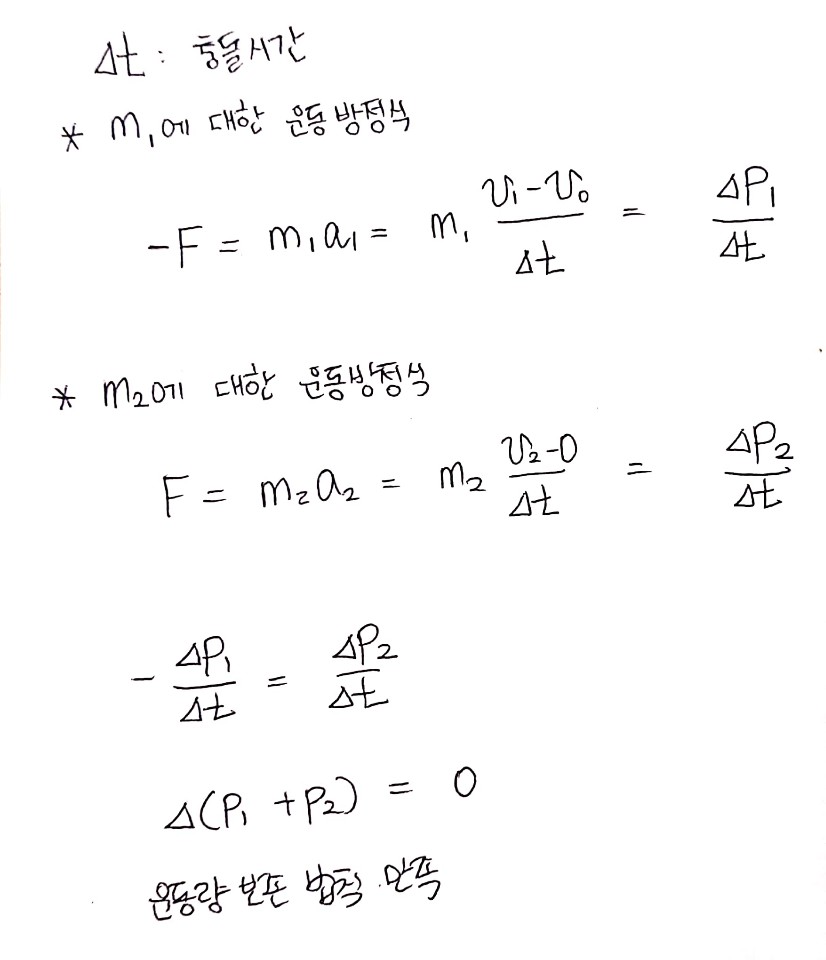 Δt : 충돌시간
* m₁에 대한 운동 방정식
-F = m₁a₁ = m₁ (v₁-v₀)/Δt = ΔP₁/Δt
* m₂에 대한 운동방정식
F = m₂a₂ = m₂ (v₂-0)/Δt = ΔP₂/Δt
- ΔP₁/Δt = ΔP₂/Δt
Δ(P₁ + P₂) = 0
운동량 보존 법칙 만족